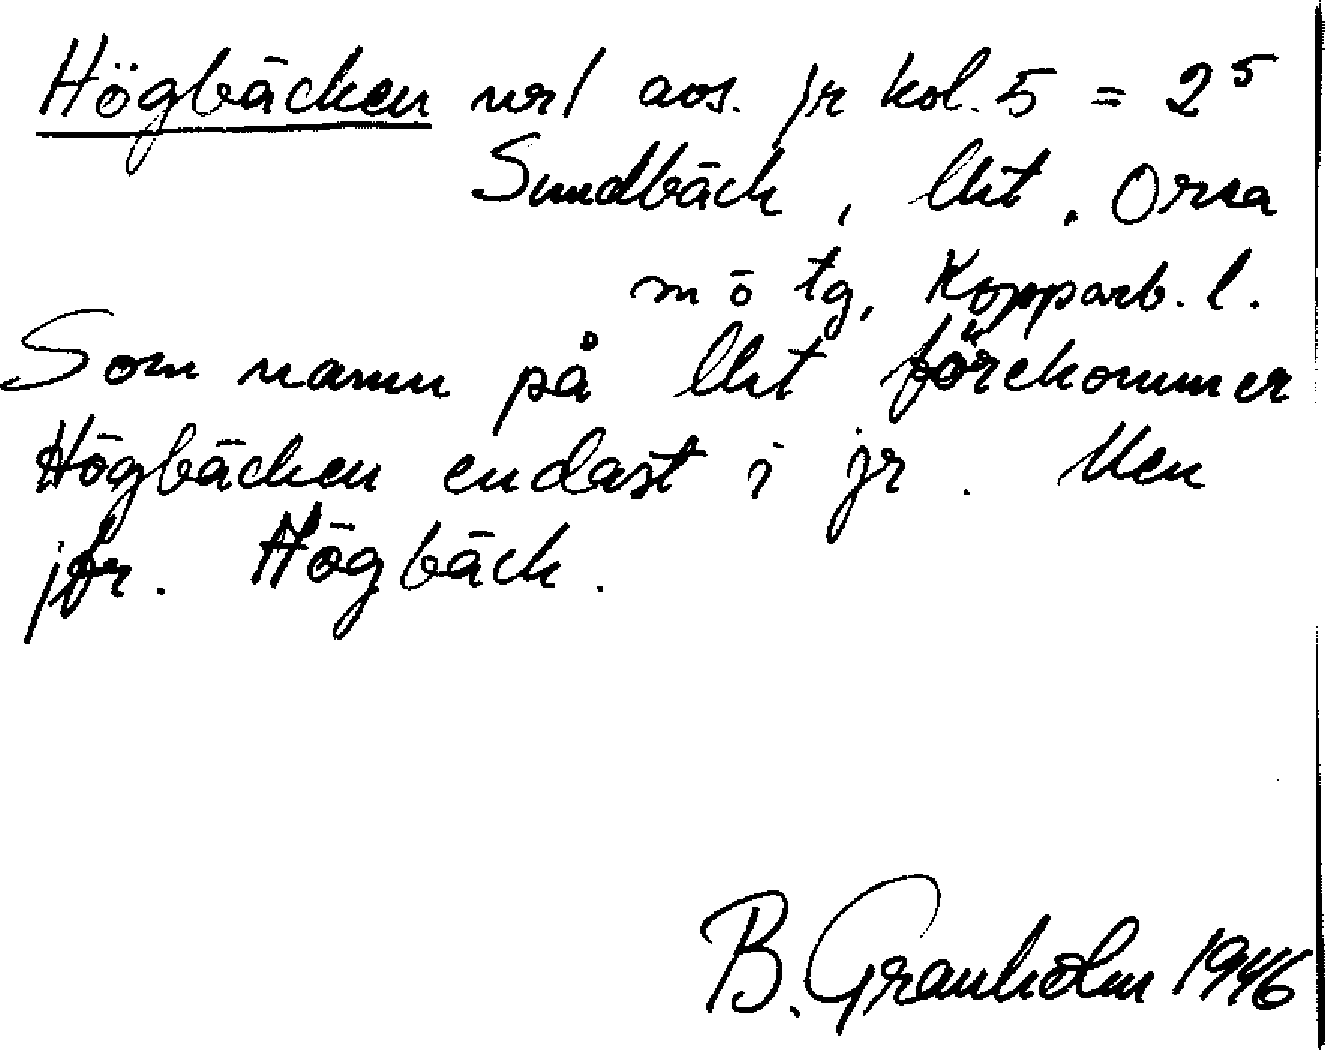 Högbäcken nr1 aos. jr kol. 5 = 2⁵
Sundbäck, lht. Orsa
m ö tg, Kopparb. l.
Som namn på lht förekommer
Högbäcken endast i jr. Men
jfr. Högbäck.
B. Granholm 1946